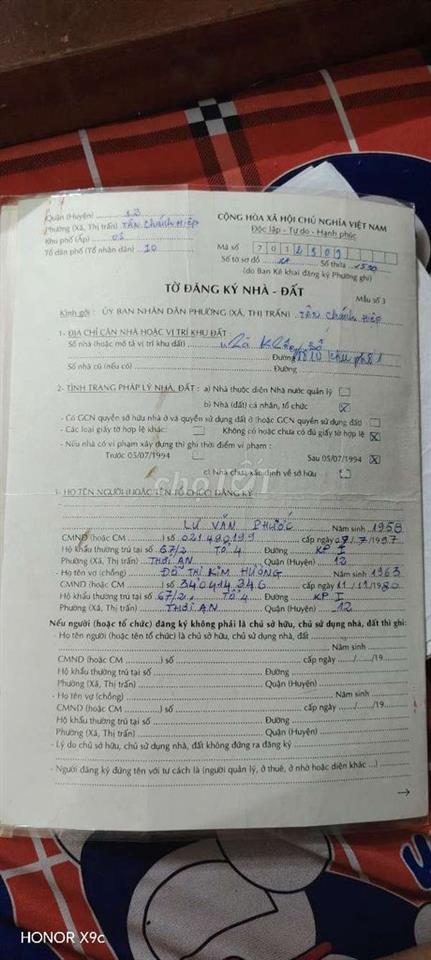 Quận (Huyện) 12
Phường (Xã, Thị trấn) TÂN Chánh Hiệp
Khu phố (Ấp) 01
Tổ dân phố (Tổ nhân dân) 10
CỘNG HÒA XÃ HỘI CHỦ NGHĨA VIỆT NAM
Độc lập - Tự do - Hạnh phúc
Mã số 7 0 1 2 3 0 9
Số tờ sơ đồ Số thửa
(do Ban Kê khai đăng ký Phường ghi)
TỜ ĐĂNG KÝ NHÀ - ĐẤT
Mẫu số 3
Kính gởi : ỦY BAN NHÂN DÂN PHƯỜNG (XÃ, THỊ TRẤN) TÂN Chánh Hiệp
1- ĐỊA CHỈ CĂN NHÀ HOẶC VỊ TRÍ KHU ĐẤT :
Số nhà (hoặc mô tả vị trí khu đất) Nhà Không Số
Đường
Số nhà cũ (nếu có) Đường
2- TÌNH TRẠNG PHÁP LÝ NHÀ, ĐẤT : a) Nhà thuộc diện Nhà nước quản lý
b) Nhà (đất) cá nhân, tổ chức X
- Có GCN quyền sở hữu nhà ở và quyền sử dụng đất ở (hoặc GCN quyền sử dụng đất)
- Các loại giấy tờ hợp lệ khác: Không có hoặc chưa có đủ giấy tờ hợp lệ X
- Nếu nhà có vi phạm xây dựng thì ghi thời điểm vi phạm :
Trước 05/07/1994 Sau 05/07/1994 X
c) Nhà chưa xác định về sở hữu
chợTỐT
3- HỌ TÊN NGƯỜI (HOẶC TÊN TỔ CHỨC) ĐĂNG KÝ
LƯ VĂN PHƯỚC Năm sinh 1958
CMND (hoặc CM ) số 021490199 cấp ngày 07/7/1997
Hộ khẩu thường trú tại số 67/2 TỔ 4 Đường KP I
Phường (Xã, Thị trấn) THỚI AN Quận (Huyện) 12
- Họ tên vợ (chồng) ĐỖ THỊ KIM HƯỜNG Năm sinh 1963
CMND (hoặc CM ) số 340414246 cấp ngày 11/11/1980
Hộ khẩu thường trú tại số 67/2, TỔ 4 Đường KP I
Phường (Xã, Thị trấn) THỚI AN Quận (Huyện) 12
Nếu người (hoặc tổ chức) đăng ký không phải là chủ sở hữu, chủ sử dụng nhà, đất thì ghi:
- Họ tên người (hoặc tên tổ chức) là chủ sở hữu, chủ sử dụng nhà, đất
Năm sinh
CMND (hoặc CM ) số cấp ngày / /19
Hộ khẩu thường trú tại số Đường
Phường (Xã, Thị trấn) Quận (Huyện)
- Họ tên vợ (chồng) Năm sinh
CMND (hoặc CM ) số cấp ngày / /19
Hộ khẩu thường trú tại số Đường
Phường (Xã, Thị trấn) Quận (Huyện)
- Lý do chủ sở hữu, chủ sử dụng nhà, đất không đứng ra đăng ký
- Người đăng ký đứng tên với tư cách là (người quản lý, ở thuê, ở nhờ hoặc diện khác ...)
HONOR X9c